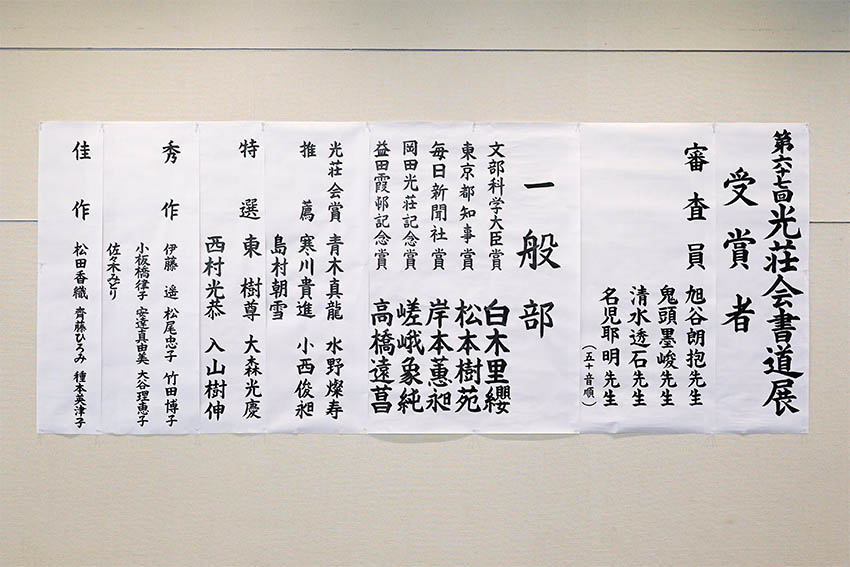 第六十七回光荘会書道展
受賞者
審査員
旭谷朗抱先生
鬼頭墨峻先生
清水透石先生
名児耶 明先生
(五十音順)
一般部
文部科学大臣賞 白木里纓
東京都知事賞 松本樹苑
毎日新聞社賞 岸本蕙昶
岡田光荘記念賞 嵯峨象純
益田霞邨記念賞 高橋遠菖
光荘会賞 青木真龍 水野燦寿
推薦 寒川貴進 小西俊昶
島村朝雪
特選 東樹尊 大森光慶
西村光恭 入山樹伸
秀作 伊藤 遥 松尾忠子 竹田博子
小板橋律子 安達真由美 大谷理恵子
佐々木みどり
佳作 松田香織 齊藤ひろみ 種本英津子